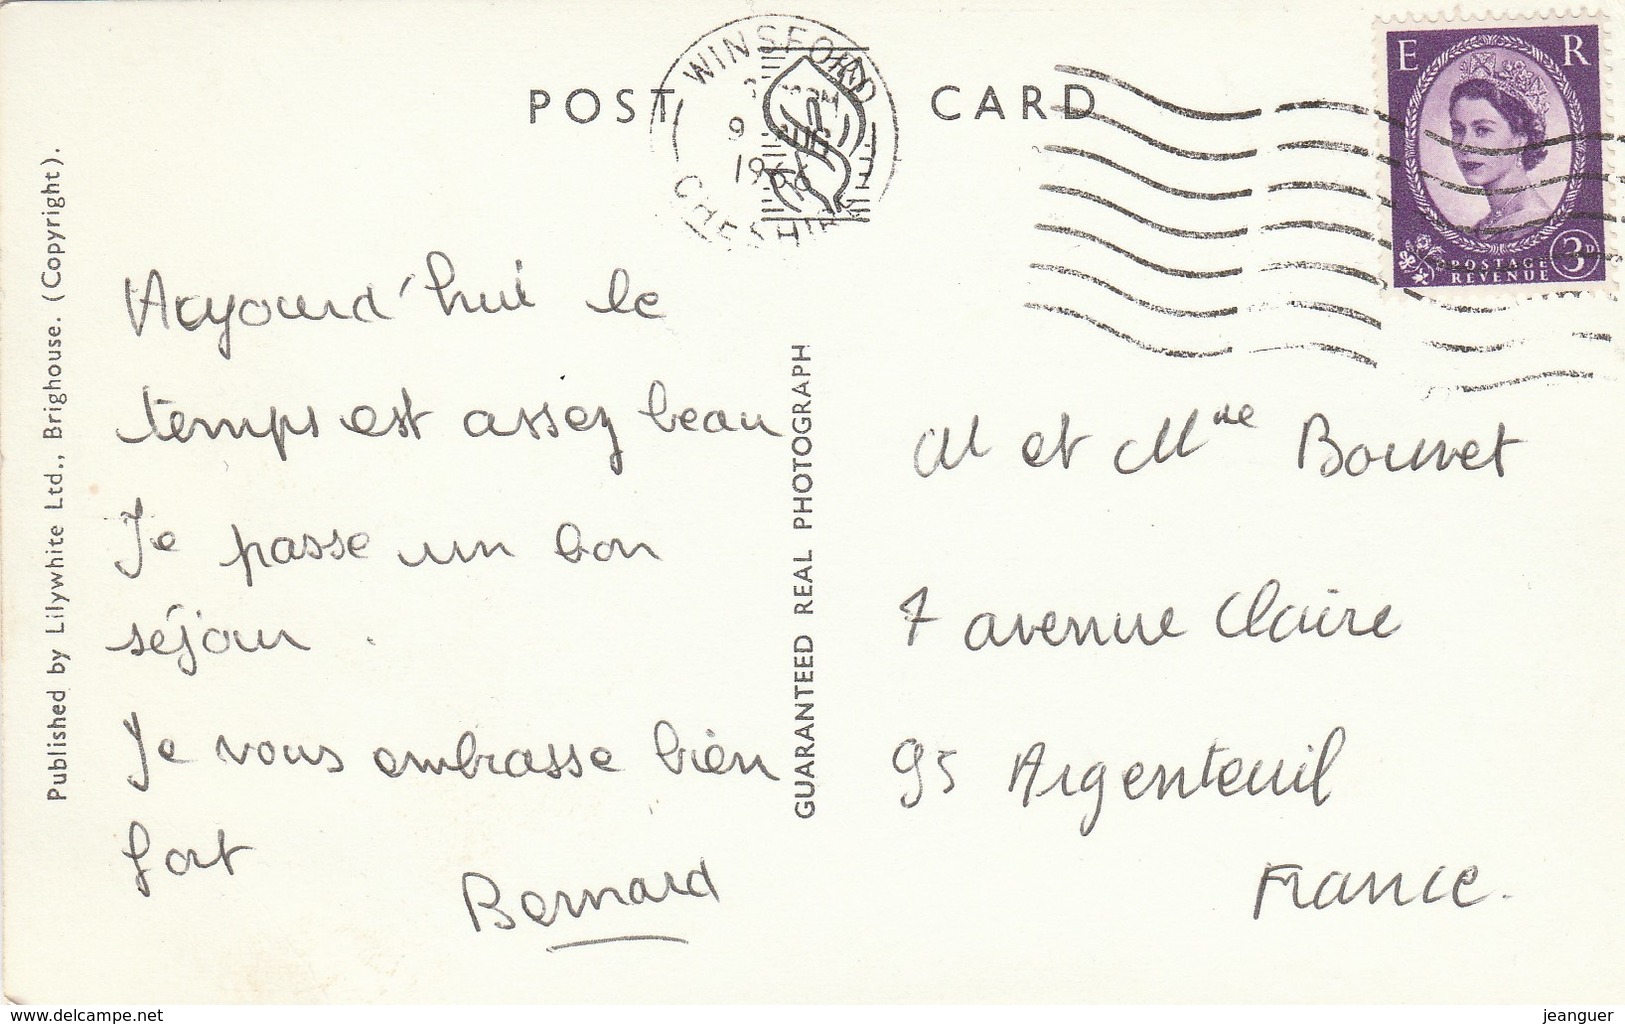 POST CARD
WINSFORD
9 AUG
1966
CHESHIRE
E R
POSTAGE
REVENUE
3D
Published by Lilywhite Ltd., Brighouse. (Copyright).
Aujourd'hui le
temps est assez beau
Je passe un bon
séjour.
Je vous embrasse bien
fort
Bernard
GUARANTEED REAL PHOTOGRAPH
M et Mme Bouvet
7 avenue Claire
95 Argenteuil
France.
www.delcampe.net
jeanguer